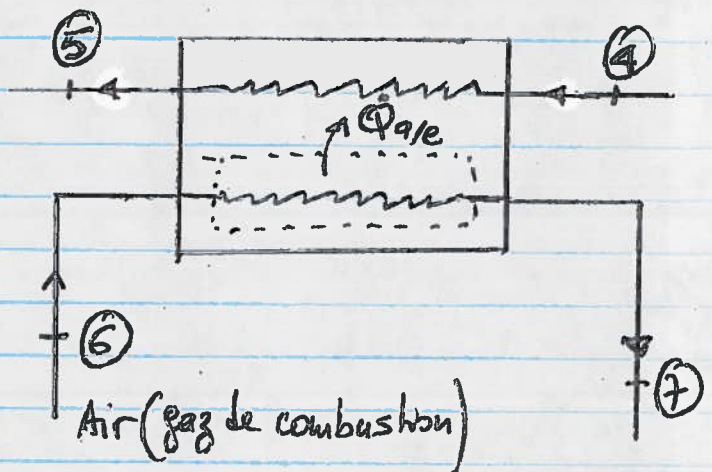 ⑤ ④
Q̇a/e
⑥
⑦
Air (gaz de combustion)